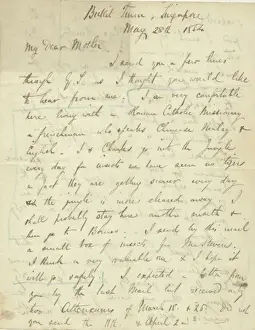 Bukit Tima, Singapore
May 28th 1854
My dear Mother
I send you a few lines
through G.S. as I thought you would like
to hear from me. I am very comfortable
here living with a Roman Catholic Missionary
a frenchman who speaks Chinese Malay &
English. I & Charles go into the jungle
every day for insects we have seen no tigers
in fact they are getting scarcer every day
as the jungle is more cleared away I
shall probably stay here another month &
then go to Borneo. I send by this mail
a small box of insects for Mr Stevens,
I think a very valuable one & I hope it
will go safely. I expected a letter from
you by the last Mail but received only
two Athenaeums of March 18. & 25. Did not
you send the 11th & April 2nd ?